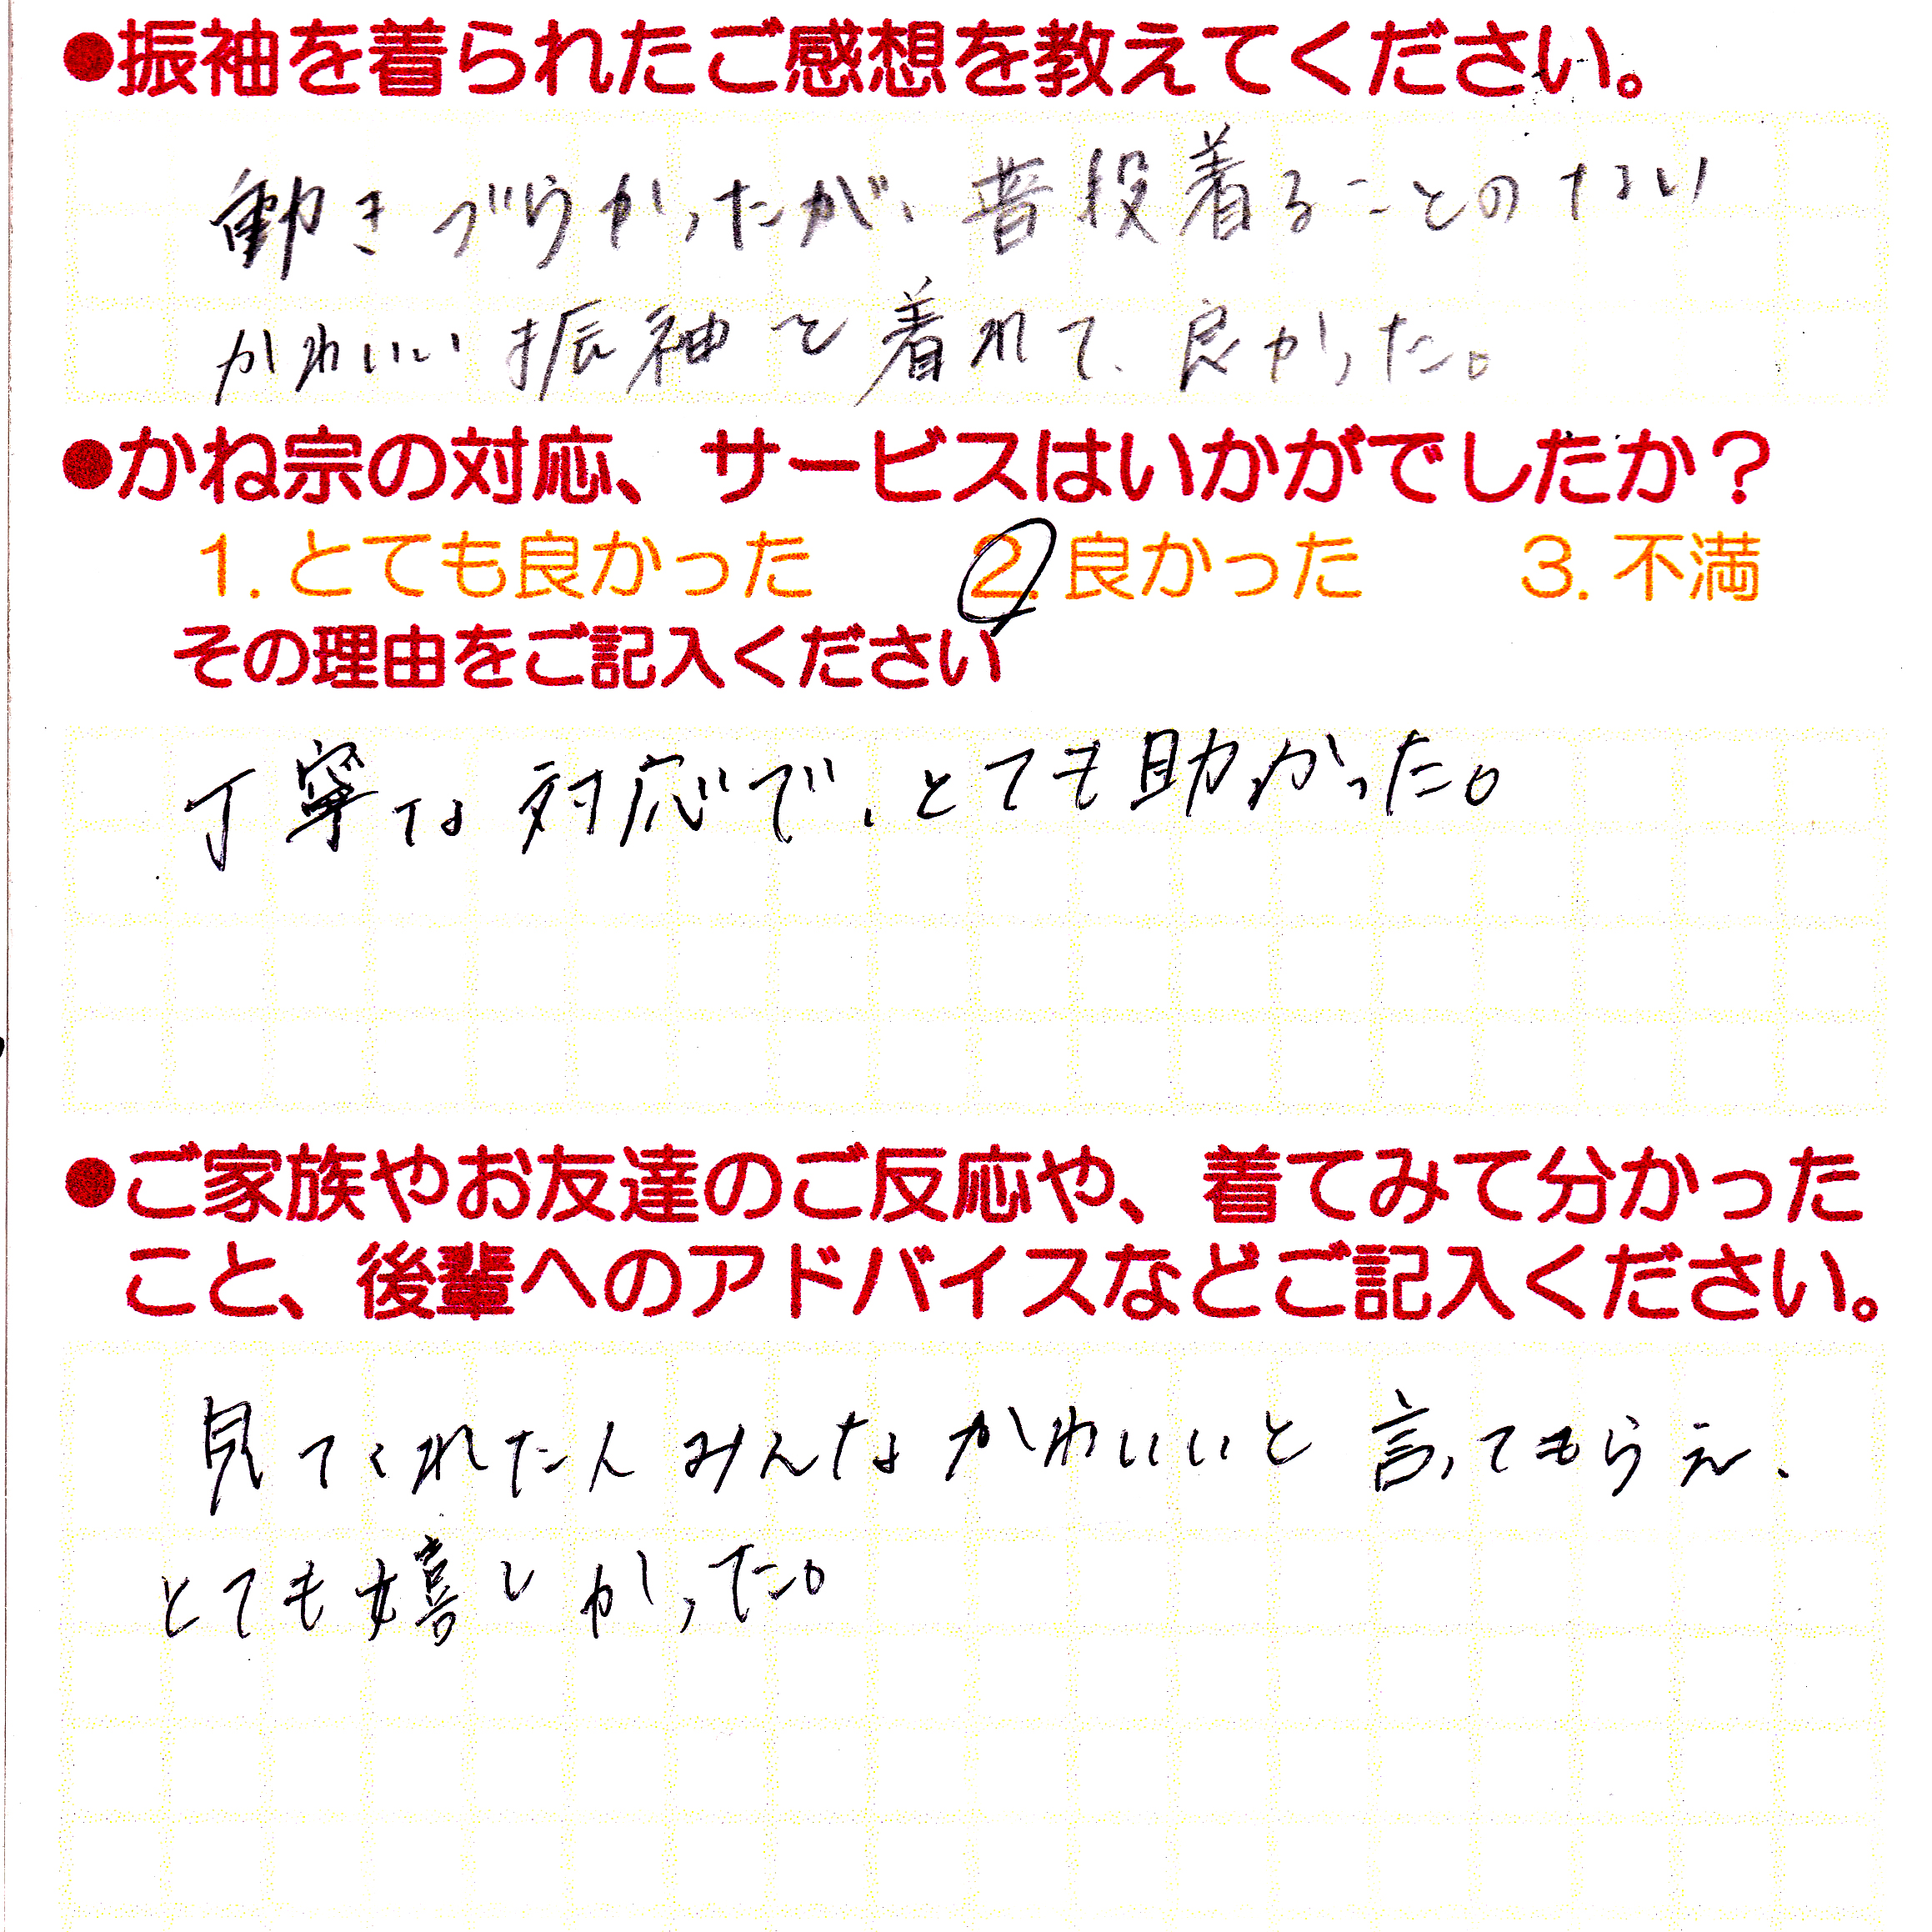 ●振袖を着られたご感想を教えてください。
動きづらかったが、普段着ることのない
かわいい振袖を着れて、良かった。
●かね宗の対応、サービスはいかがでしたか？
1. とても良かった 2. 良かった 3. 不満
その理由をご記入ください
丁寧な対応で、とても助かった。
●ご家族やお友達のご反応や、着てみて分かった
こと、後輩へのアドバイスなどご記入ください。
見てくれた人みんなかわいいと言ってもらえ、
とても嬉しかった。